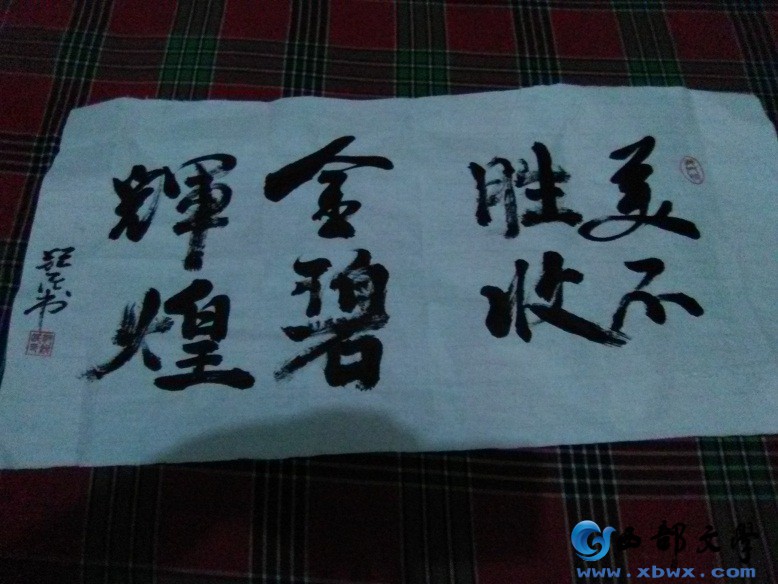 美不
胜收
金碧
輝煌
西部文學
www.xbwx.com